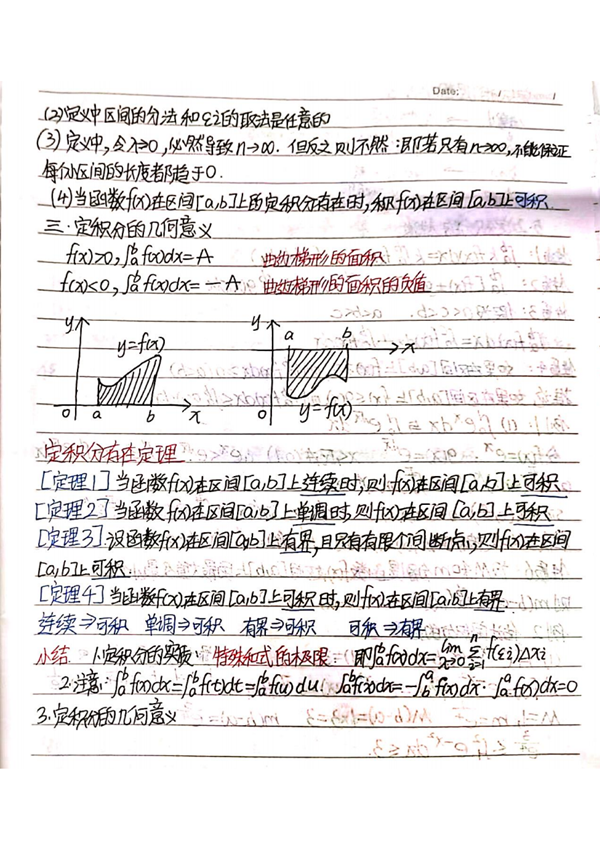 Date: / /
(2)定义中区间的分法和ξi的取法是任意的
(3)定义中,令λ→0,必然导致n→∞.但反之则不然:即若只有n→∞,不能保证
每个小区间的长度都趋于0.
(4)当函数f(x)在区间[a,b]上的定积分存在时,称f(x)在区间[a,b]上可积.
三.定积分的几何意义
f(x)>0,∫ₐᵇf(x)dx=A 曲边梯形的面积
f(x)<0,∫ₐᵇf(x)dx=-A 曲边梯形的面积的负值
y y=f(x) 0 a b x
y a b x 0 y=f(x)
定积分存在定理
[定理1]当函数f(x)在区间[a,b]上连续时,则f(x)在区间[a,b]上可积
[定理2]当函数f(x)在区间[a,b]上单调时,则f(x)在区间[a,b]上可积
[定理3]设函数f(x)在区间[a,b]上有界,且只有有限个间断点,则f(x)在区间
[a,b]上可积.
[定理4]当函数f(x)在区间[a,b]上可积时,则f(x)在区间[a,b]上有界.
连续⇒可积 单调⇒可积 有界⇒可积 可积⇒有界
小结. 1.定积分的实质:特殊和式的极限. 即∫ₐᵇf(x)dx=lim λ→0 Σⁿᵢ₌₁f(ξi)Δxi
2.注意:∫ₐᵇf(x)dx=∫ₐᵇf(t)dt=∫ₐᵇf(u)du. ∫ₐᵇf(x)dx=-∫ᵇₐf(x)dx. ∫ₐᵃf(x)dx=0
3.定积分的几何意义